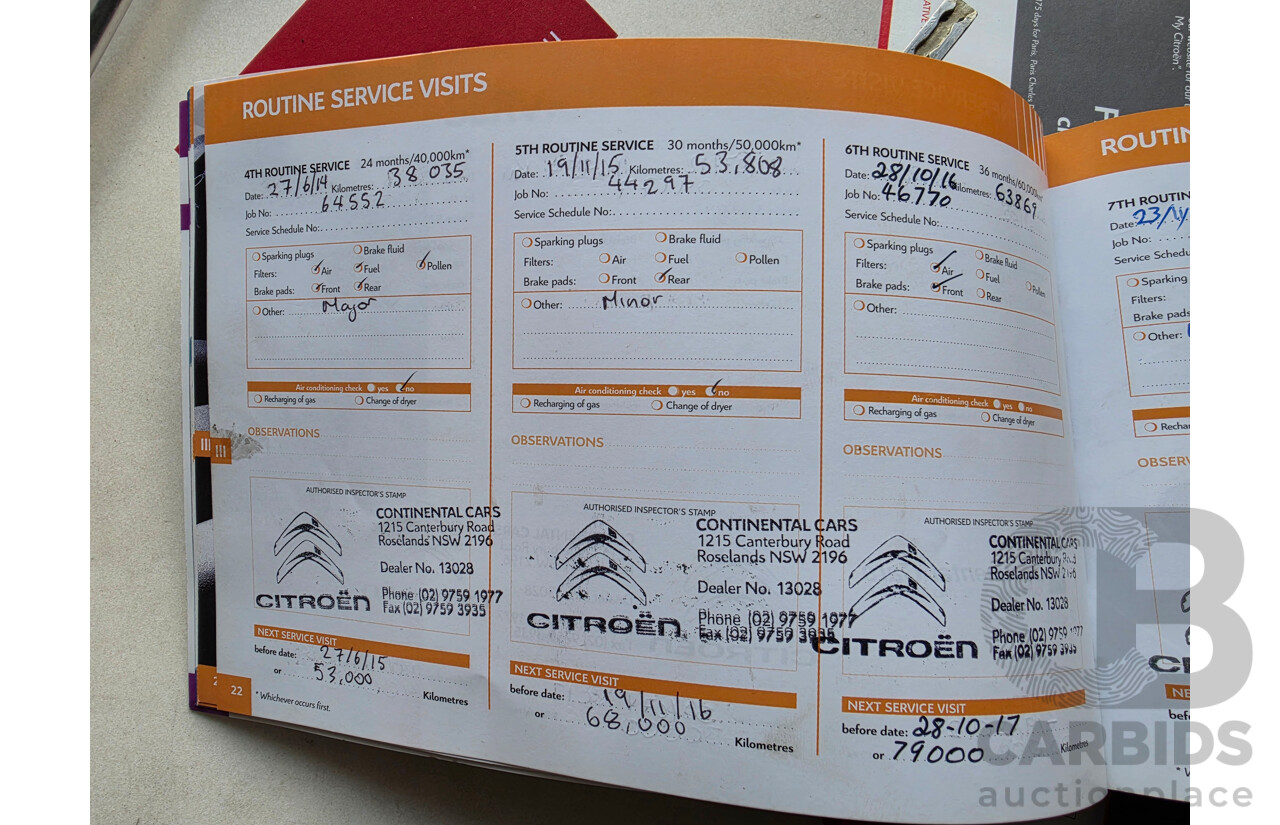 ROUTINE SERVICE VISITS
4TH ROUTINE SERVICE 24 months/40,000km*
Date: 27/6/14 Kilometres: 38 035
Job No: 64552
Service Schedule No:
Sparking plugs Brake fluid
Filters: Air Fuel Pollen
Brake pads: Front Rear
Other: Major
Air conditioning check yes no
Recharging of gas Change of dryer
OBSERVATIONS
AUTHORISED INSPECTOR'S STAMP
CONTINENTAL CARS
1215 Canterbury Road
Roselands NSW 2196
Dealer No. 13028
Phone (02) 9759 1977
Fax (02) 9759 3935
CITROËN
NEXT SERVICE VISIT
before date: 27/6/15
or 53,000
Kilometres
22
* Whichever occurs first.
5TH ROUTINE SERVICE 30 months/50,000km*
Date: 19/11/15 Kilometres: 53,808
Job No: 44297
Service Schedule No:
Sparking plugs Brake fluid
Filters: Air Fuel Pollen
Brake pads: Front Rear
Other: Minor
Air conditioning check yes no
Recharging of gas Change of dryer
OBSERVATIONS
AUTHORISED INSPECTOR'S STAMP
CONTINENTAL CARS
1215 Canterbury Road
Roselands NSW 2196
Dealer No. 13028
Phone (02) 9759 1977
Fax (02) 9759 3935
CITROËN
NEXT SERVICE VISIT
before date: 19/11/16
or 68,000
Kilometres
6TH ROUTINE SERVICE 36 months/60,000km*
Date: 28/10/16 Kilometres: 63869
Job No: 46770
Service Schedule No:
Sparking plugs Brake fluid
Filters: Air Fuel Pollen
Brake pads: Front Rear
Other:
Air conditioning check yes no
Recharging of gas Change of dryer
OBSERVATIONS
AUTHORISED INSPECTOR'S STAMP
CONTINENTAL CARS
1215 Canterbury Road
Roselands NSW 2196
Dealer No. 13028
Phone (02) 9759 1977
Fax (02) 9759 3935
CITROËN
NEXT SERVICE VISIT
before date: 28-10-17
or 79000
Kilometres
ROUTIN
7TH ROUTIN
Date: 23/
Job No:
Service Schedu
Sparking
Filters:
Brake pads
Other:
Rechar
OBSERV
C
NE
bef
My Citroën".
CARBIDS
auctionplace